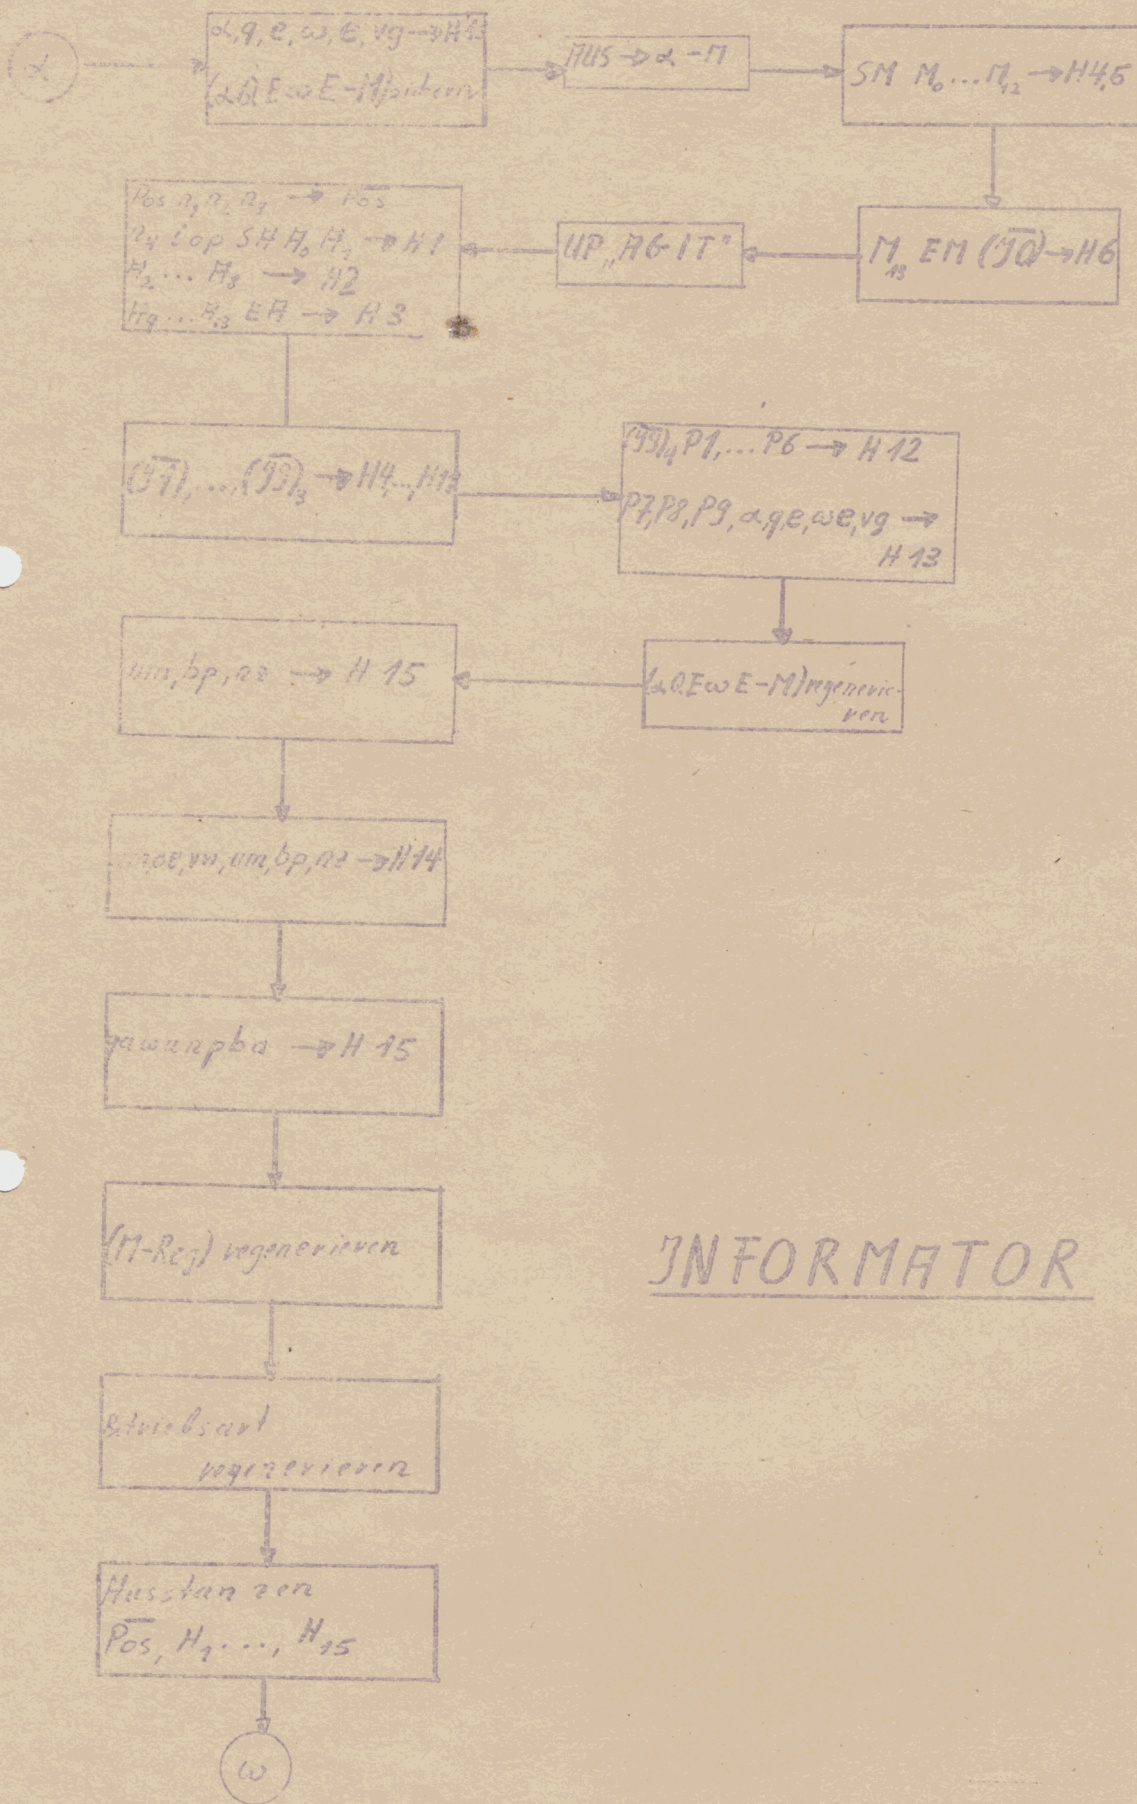 α
α, q, e, ω, ε, vg → H13
(α Q E ω E-M)
AUS → α-M
SM M₀...M₁₂ → H4,5
M₁₃ EM (J0) → H6
UP „AGIT"
Pos n₁ n₂ n₃ → P̅o̅s̅
n₄ i op SA A₀ A₁ → H1
A₂ ... A₈ → H2
A₉ ... A₁₃ EA → H3
(J1),...,(J9)₃ → H4,...,H12
(J9)₄ P1,...P6 → H 12
P7,P8,P9, α,q,e,ωe,vg →
H 13
(αQEωE-M)regenerie-
ren
um,bp,nz → H 15
vn,um,bp,nz → H14
→ H 15
(M-Reg) regenerieren
JNFORMATOR
Betriebsart
regenerieren
Ausstanzen
P̅o̅s̅, H₁ ..., H₁₅
ω